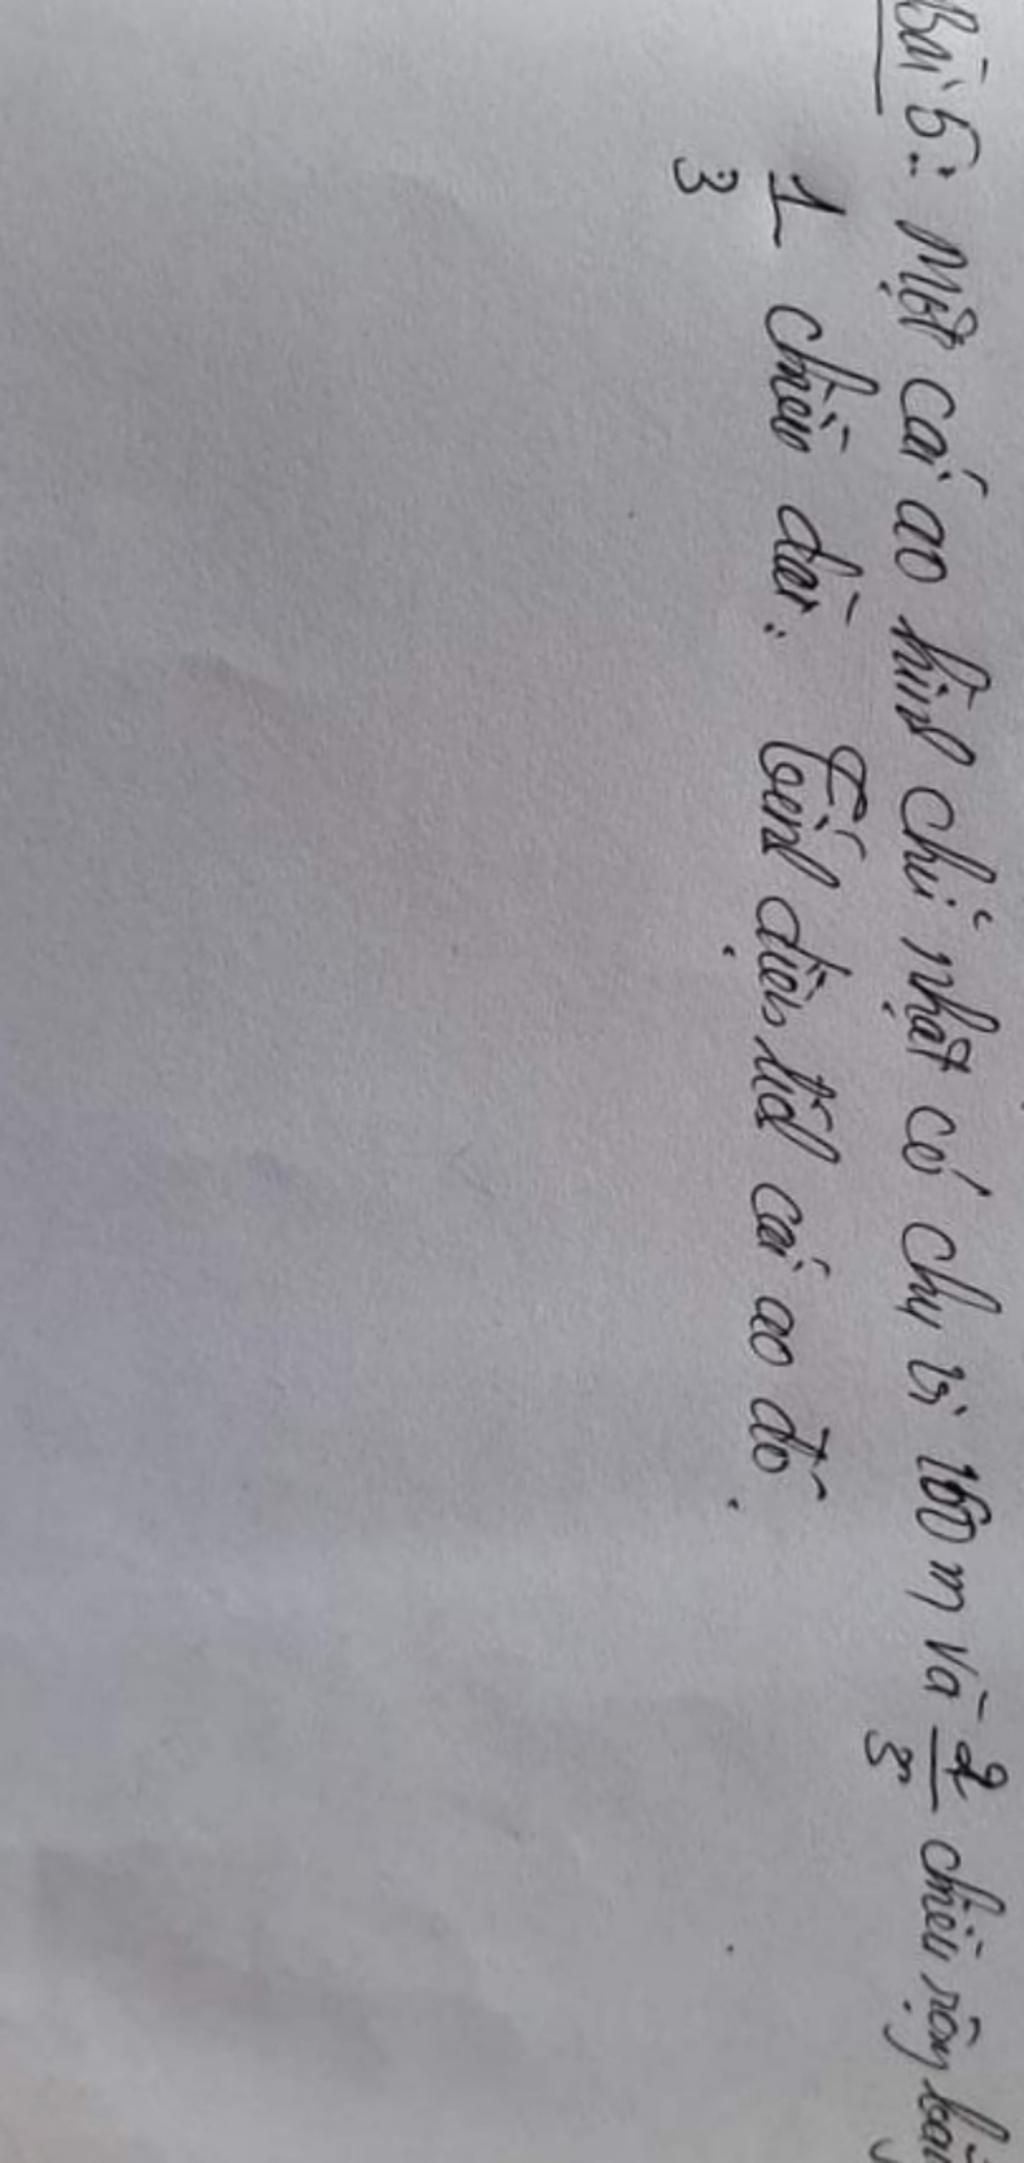 Bài 5: Một cái ao hình chữ nhật có chu vi 160 m và 2/5 chiều rộng bằng
1/3 chiều dài. Tính diện tích cái ao đó.